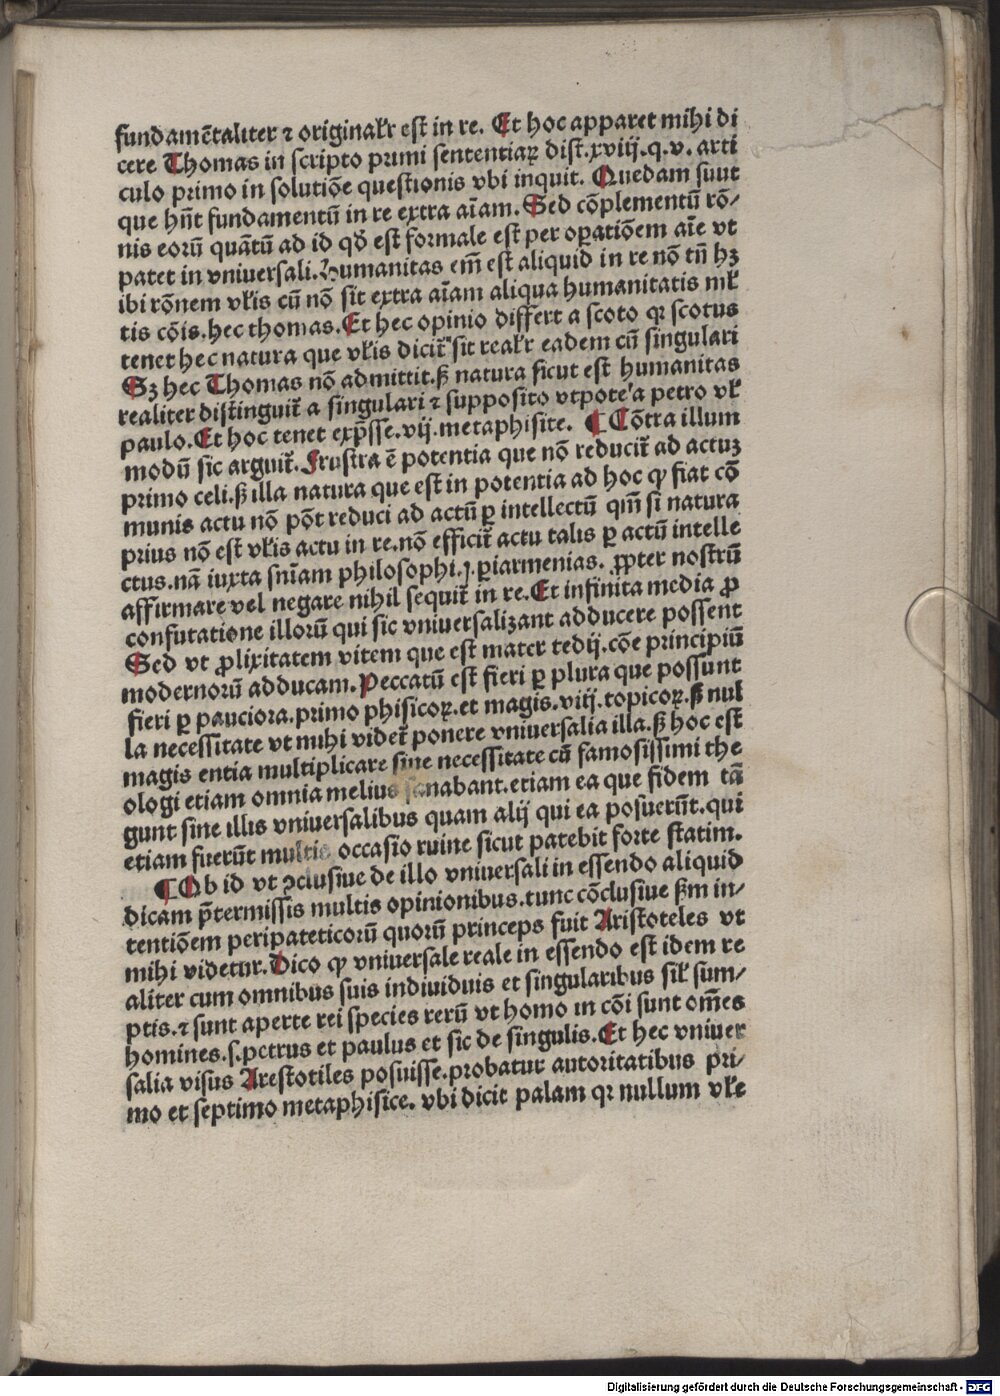 fundamētaliter ⁊ originalr̄ est in re. Et hoc apparet mihi di
cere Thomas in scripto primi sententiaꝝ dist.xviij.q.v. arti
culo primo in solutiōe questionis vbi inquit. Quedam suut
que hn̄t fundamentū in re extra aīam. Sed cōplementū rō/
nis eorū quātū ad id qd̄ est formale est per oꝑatiōem aīe vt
patet in vniuersali. Humanitas em̄ est aliquid in re nō tn̄ hꝫ
ibi rōnem vl̄is cū nō sit extra aīam aliqua humanitatis ml̄
tis cōis.hec thomas.Et hec opinio differt a scoto qꝛ scotus
tenet hec natura que vl̄is dicit̄ sit realr̄ eadem cū singulari
Sꝫ hec Thomas nō admittit.ꝭ natura ficut est humanitas
realiter distinguit̄ a singulari ⁊ supposito vtpote a petro vl̄
paulo.Et hoc tenet exp̄sse.vij.metaphisite. ¶ Cōtra illum
modū sic arguit̄.Frustra ē potentia que nō reducit̄ ad actuꝫ
primo celi.ꝭ illa natura que est in potentia ad hoc ꝙ fiat cō
munis actu nō pōt reduci ad actū ꝑ intellectū qm̄ si natura
prius nō est vl̄is actu in re.nō efficit̄ actu talis ꝑ actū intelle
ctus.nā iuxta sn̄iam philosophi.j.ꝑiarmenias. ꝓpter nostrū
affirmare vel negare nihil sequit̄ in re.Et infinita media ꝓ
confutatione illorū qui sic vniuersalizant adducere possent
Sed vt ꝓlixitatem vitem que est mater tedij.cōe principiū
modernorū adducam.Peccatū est fieri ꝑ plura que possunt
fieri ꝑ pauciora.primo phisicoꝝ.et magis.viij.topicoꝝ.ꝭ nul
la necessitate vt mihi videt̄ ponere vniuersalia illa.ꝭ hoc est
magis entia multiplicare sine necessitate cū famosissimi the
ologi etiam omnia melius sanabant.etiam ea que fidem tā
gunt sine illis vniuersalibus quam alij qui ea posuerūt.qui
etiam fuerūt multis occasio ruine sicut patebit forte statim.
¶ Ob id vt ꝯclusiue de illo vniuersali in essendo aliquid
dicam p̄termissis multis opinionibus.tunc cōclusiue ꝭm in/
tentiōem peripateticorū quorū princeps fuit Aristoteles vt
mihi videtur.Dico ꝙ vniuersale reale in essendo est idem re
aliter cum omnibus suis indiuiduis et singularibus sil̄ sum/
ptis.⁊ sunt aperte rei species rerū vt homo in cōi sunt om̄es
homines.s.petrus et paulus et sic de singulis.Et hec vniuer
salia visus Arestotiles posuisse.probatur autoritatibus pri/
mo et septimo metaphisice. vbi dicit palam qꝛ nullum vl̄e
Digitalisierung gefördert durch die Deutsche Forschungsgemeinschaft - DFG